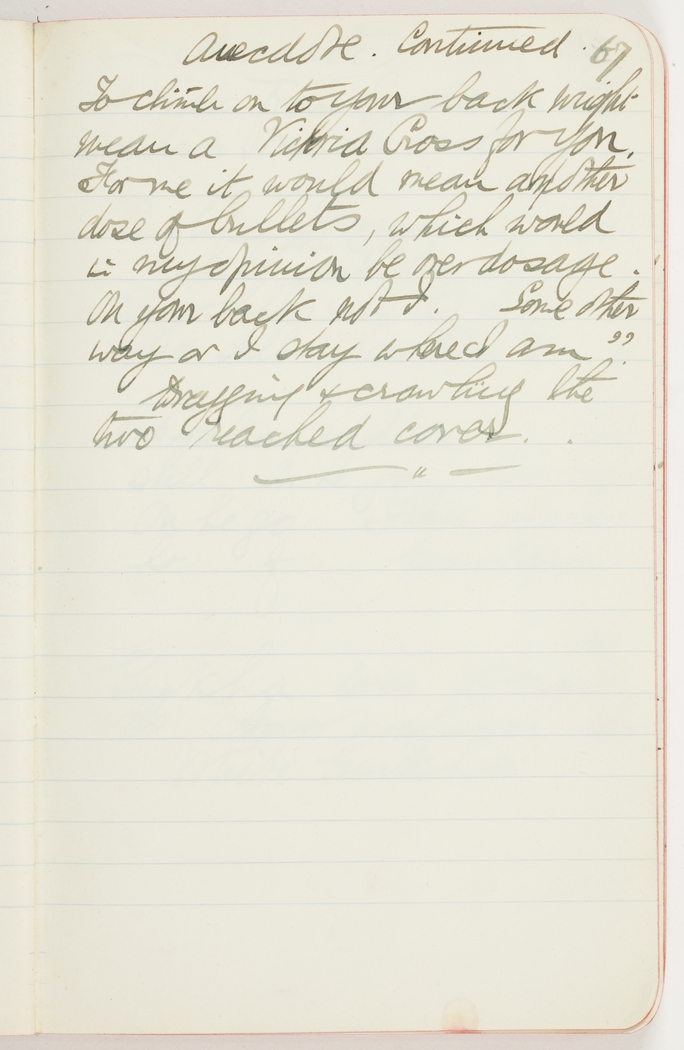 Anecdote. Continued. 67
To climb on to your back might
mean a Victoria Cross for you.
For me it would mean another
dose of bullets, which would
in my opinion be overdosage.
On your back not I. Some other
way or I stay where I am".
Dragging & crawling the
two reached cover.